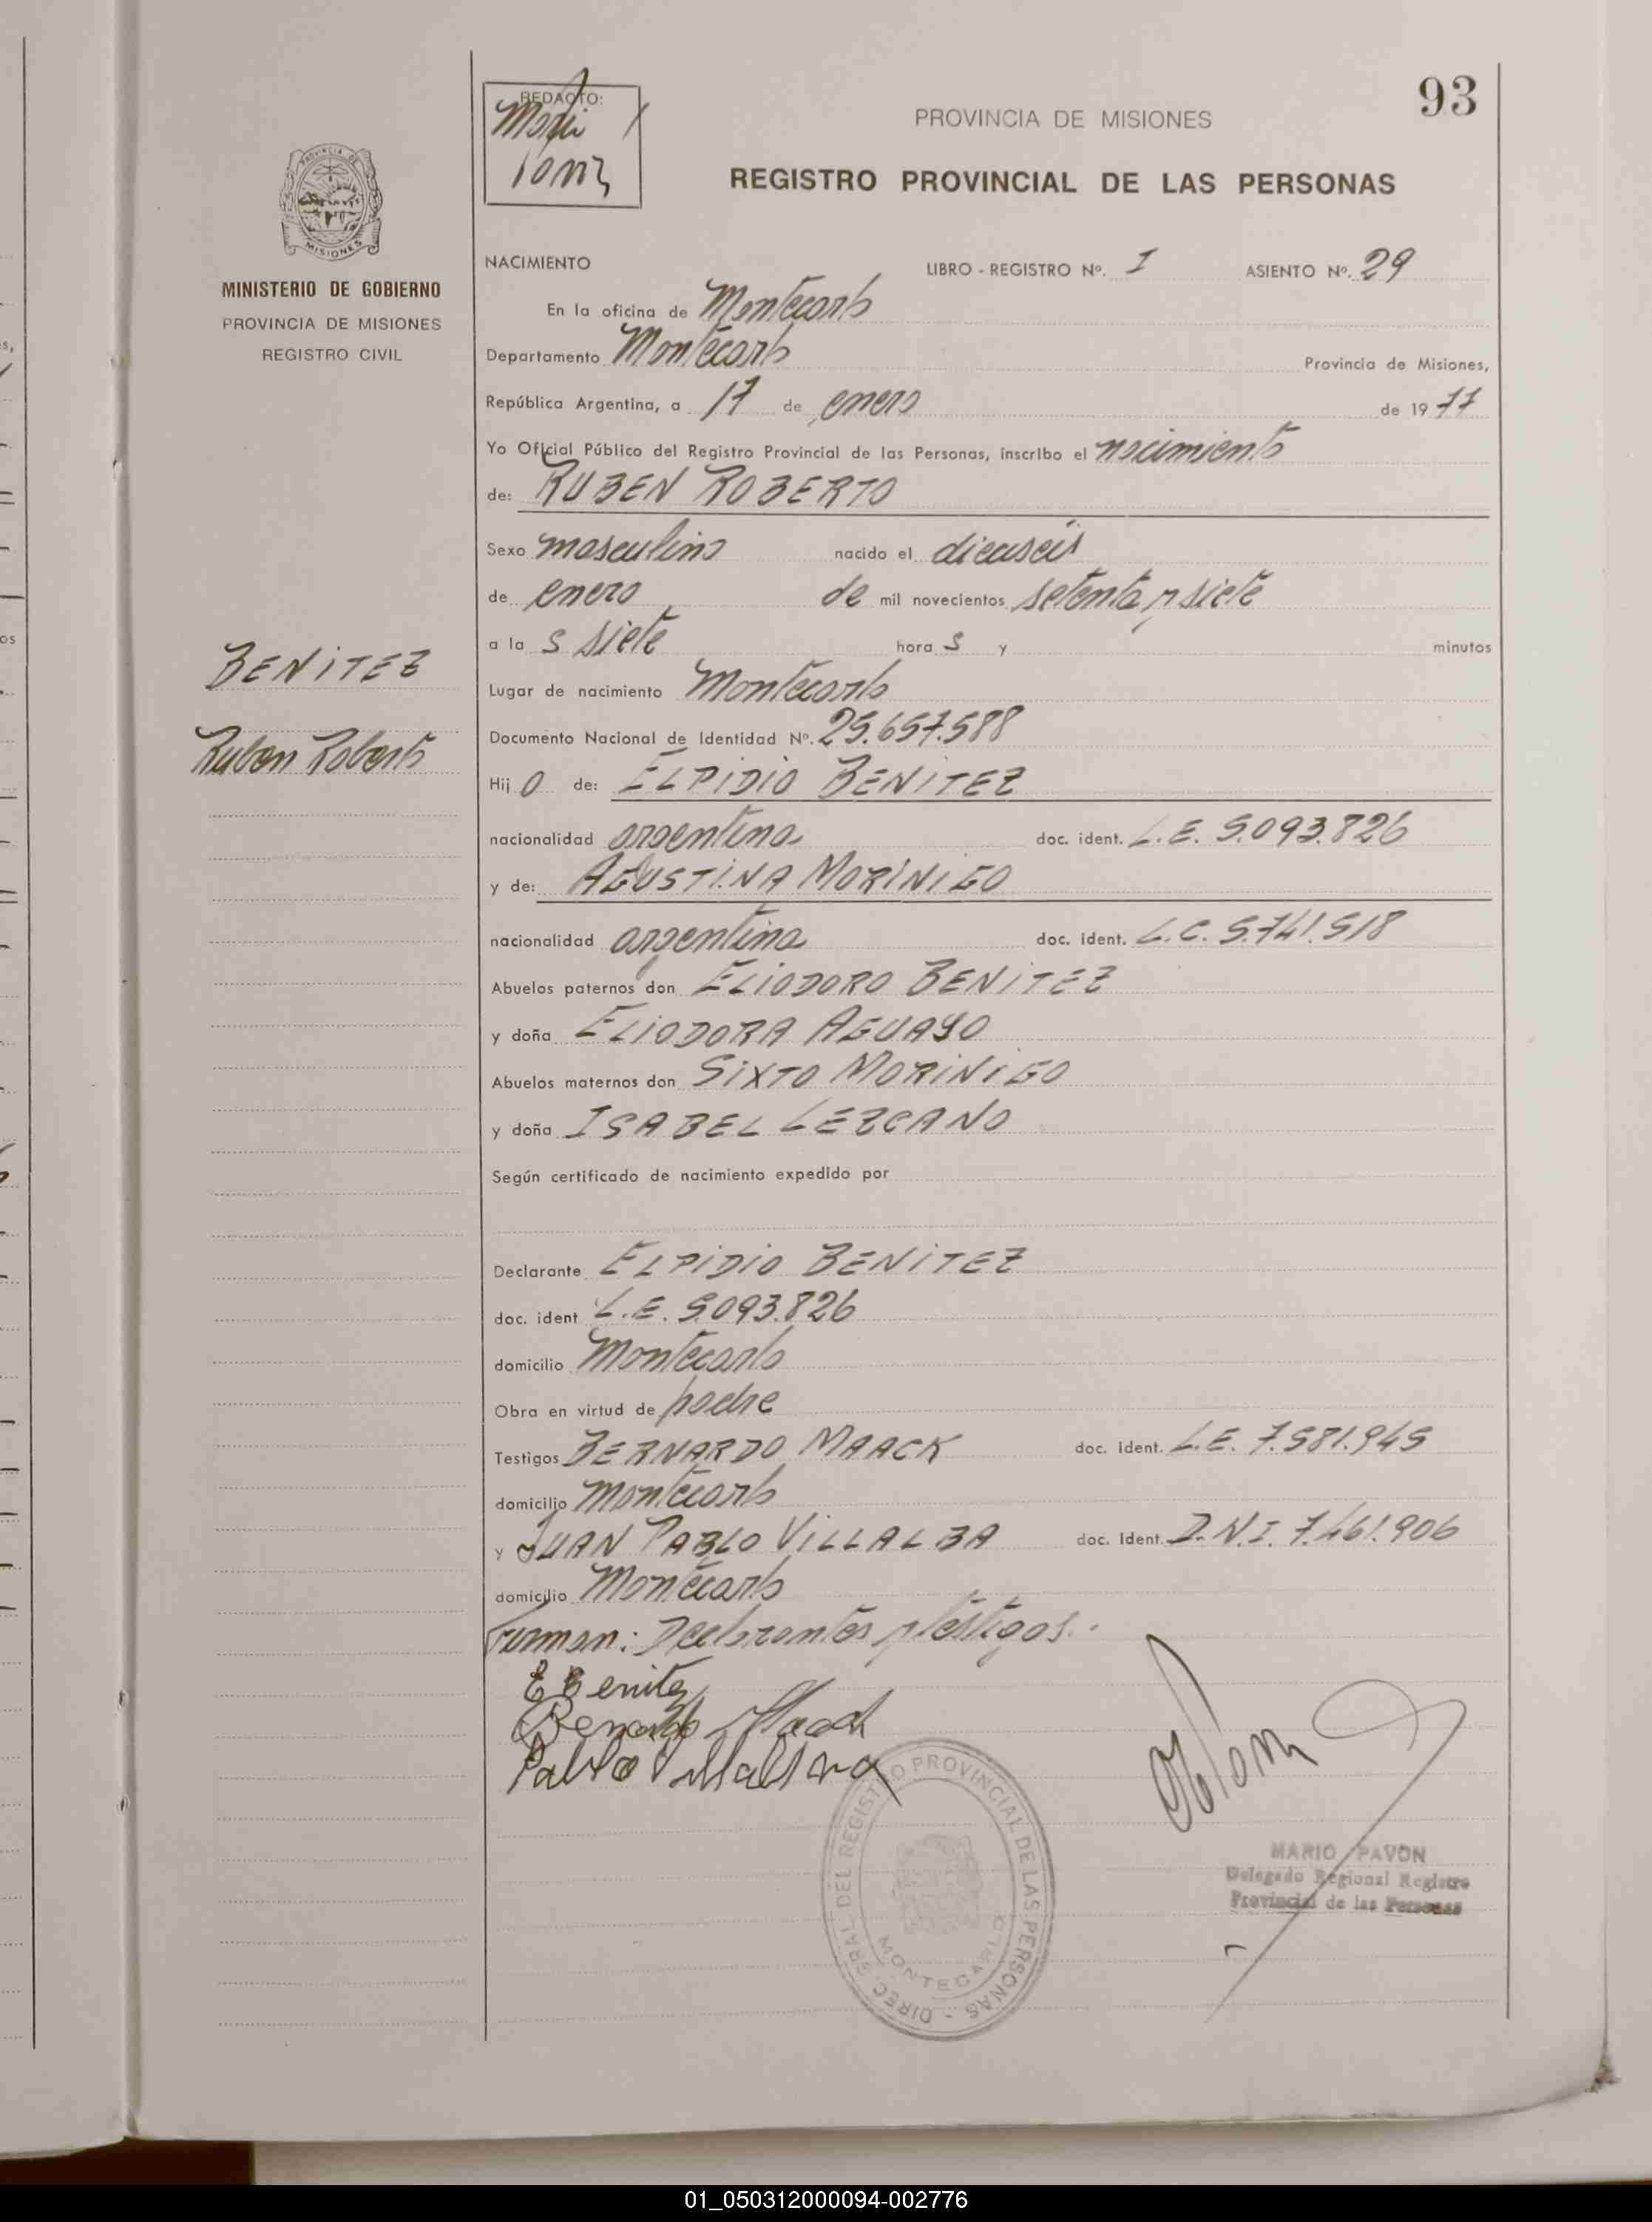 93
REDACTO:
PROVINCIA DE MISIONES
REGISTRO PROVINCIAL DE LAS PERSONAS
PROVINCIA DE
MISIONES
MINISTERIO DE GOBIERNO
PROVINCIA DE MISIONES
REGISTRO CIVIL
BENITEZ
Ruben Roberto
NACIMIENTO LIBRO - REGISTRO Nº. I ASIENTO Nº. 29
En la oficina de Montecarlo
Departamento Montecarlo Provincia de Misiones,
República Argentina, a 17 de enero de 1977
Yo Oficial Público del Registro Provincial de las Personas, inscribo el nacimiento
de: RUBEN ROBERTO
Sexo masculino nacido el dieciseis
de enero de mil novecientos setenta y siete
a la s siete hora s y minutos
Lugar de nacimiento Montecarlo
Documento Nacional de Identidad Nº. 25.657.588
Hij o de: ELPIDIO BENITEZ
nacionalidad argentina doc. ident. L.E. 5.093.826
y de: AGUSTINA MORINIGO
nacionalidad argentina doc. ident. L.C. 5.741.518
Abuelos paternos don ELIODORO BENITEZ
y doña ELIODORA AGUAYO
Abuelos maternos don SIXTO MORINIGO
y doña ISABEL LEZCANO
Según certificado de nacimiento expedido por
Declarante ELPIDIO BENITEZ
doc. ident L.E. 5.093.826
domicilio Montecarlo
Obra en virtud de padre
Testigos BERNARDO MAACK doc. ident. L.E. 7.581.945
domicilio Montecarlo
y JUAN PABLO VILLALBA doc. ident. D.N.I. 7.461.906
domicilio Montecarlo
Firman: Declarantes y testigos.
E Benitez
Bernardo Maack
Pablo Villalba
DIREC. GRAL DEL REGISTRO PROVINCIAL DE LAS PERSONAS -
MONTECARLO
MARIO PAVON
Delegado Regional Registro
Provincial de las Personas
01_050312000094-002776